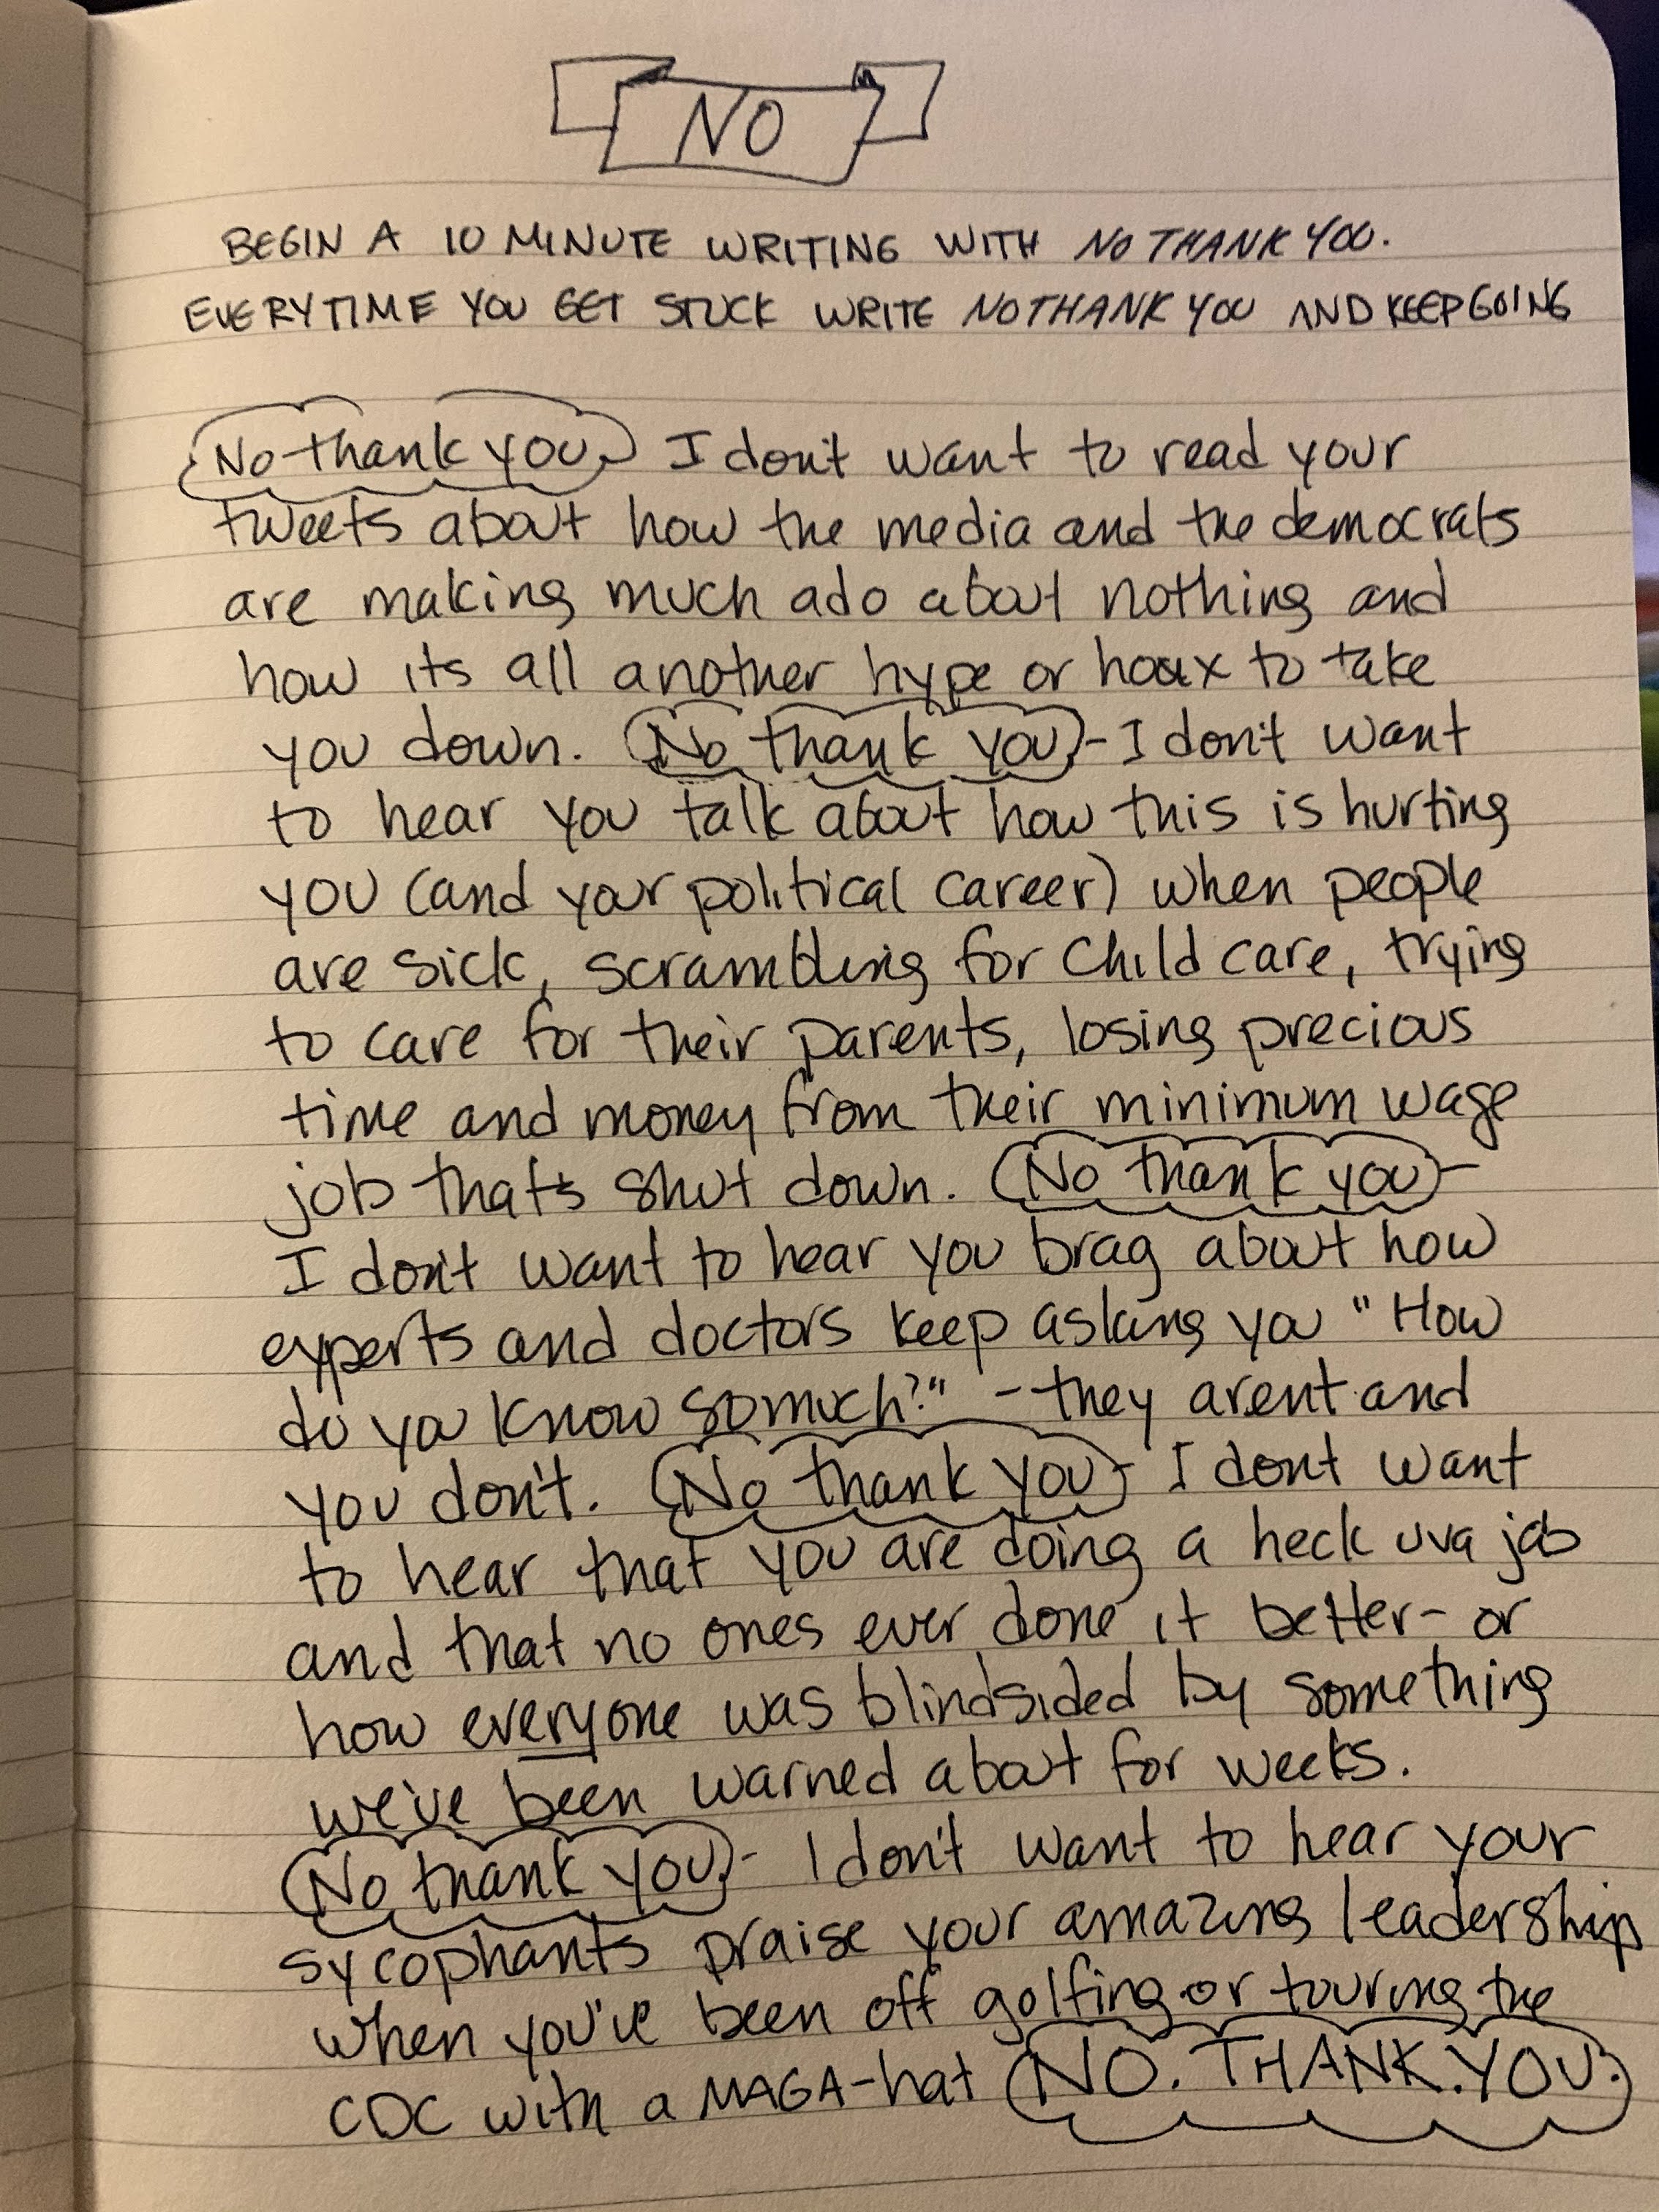 NO
BEGIN A 10 MINUTE WRITING WITH NO THANK YOU.
EVERYTIME YOU GET STUCK WRITE NO THANK YOU AND KEEP GOING
No thank you, I don't want to read your
tweets about how the media and the democrats
are making much ado about nothing and
how its all another hype or hoax to take
you down. No thank you - I don't want
to hear you talk about how this is hurting
you (and your political career) when people
are sick, scrambling for child care, trying
to care for their parents, losing precious
time and money from their minimum wage
job that's shut down. No thank you -
I don't want to hear you brag about how
experts and doctors keep asking you "How
do you know so much?" - they arent and
you don't. No thank you - I dont want
to hear that you are doing a heck uva job
and that no ones ever done it better - or
how everyone was blindsided by something
we've been warned about for weeks.
No thank you - I don't want to hear your
sycophants praise your amazing leadership
when you've been off golfing or touring the
CDC with a MAGA-hat NO. THANK. YOU.